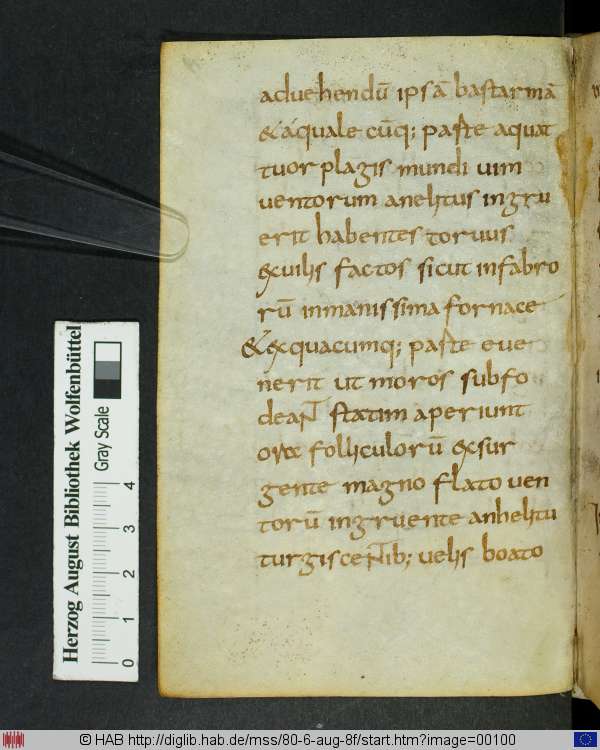 aduehendū ipsā bastarmā
& áquale cūq; paste aquat
tuor plagis mundi uim
uentorum anelitus ingru
erit habentes toruus
exuilis factos sicut infabro
rū inmanissima fornace
& exquacumq; paste eue
nerit ut moros subfo
deant statim aperiunt
ora folliculorū exsur
gente magno flato uen
torū ingruente anhelitu
turgiscentib; uelis boato
Herzog August Bibliothek Wolfenbüttel
Gray Scale
0 1 2 3 4
© HAB http://diglib.hab.de/mss/80-6-aug-8f/start.htm?image=00100